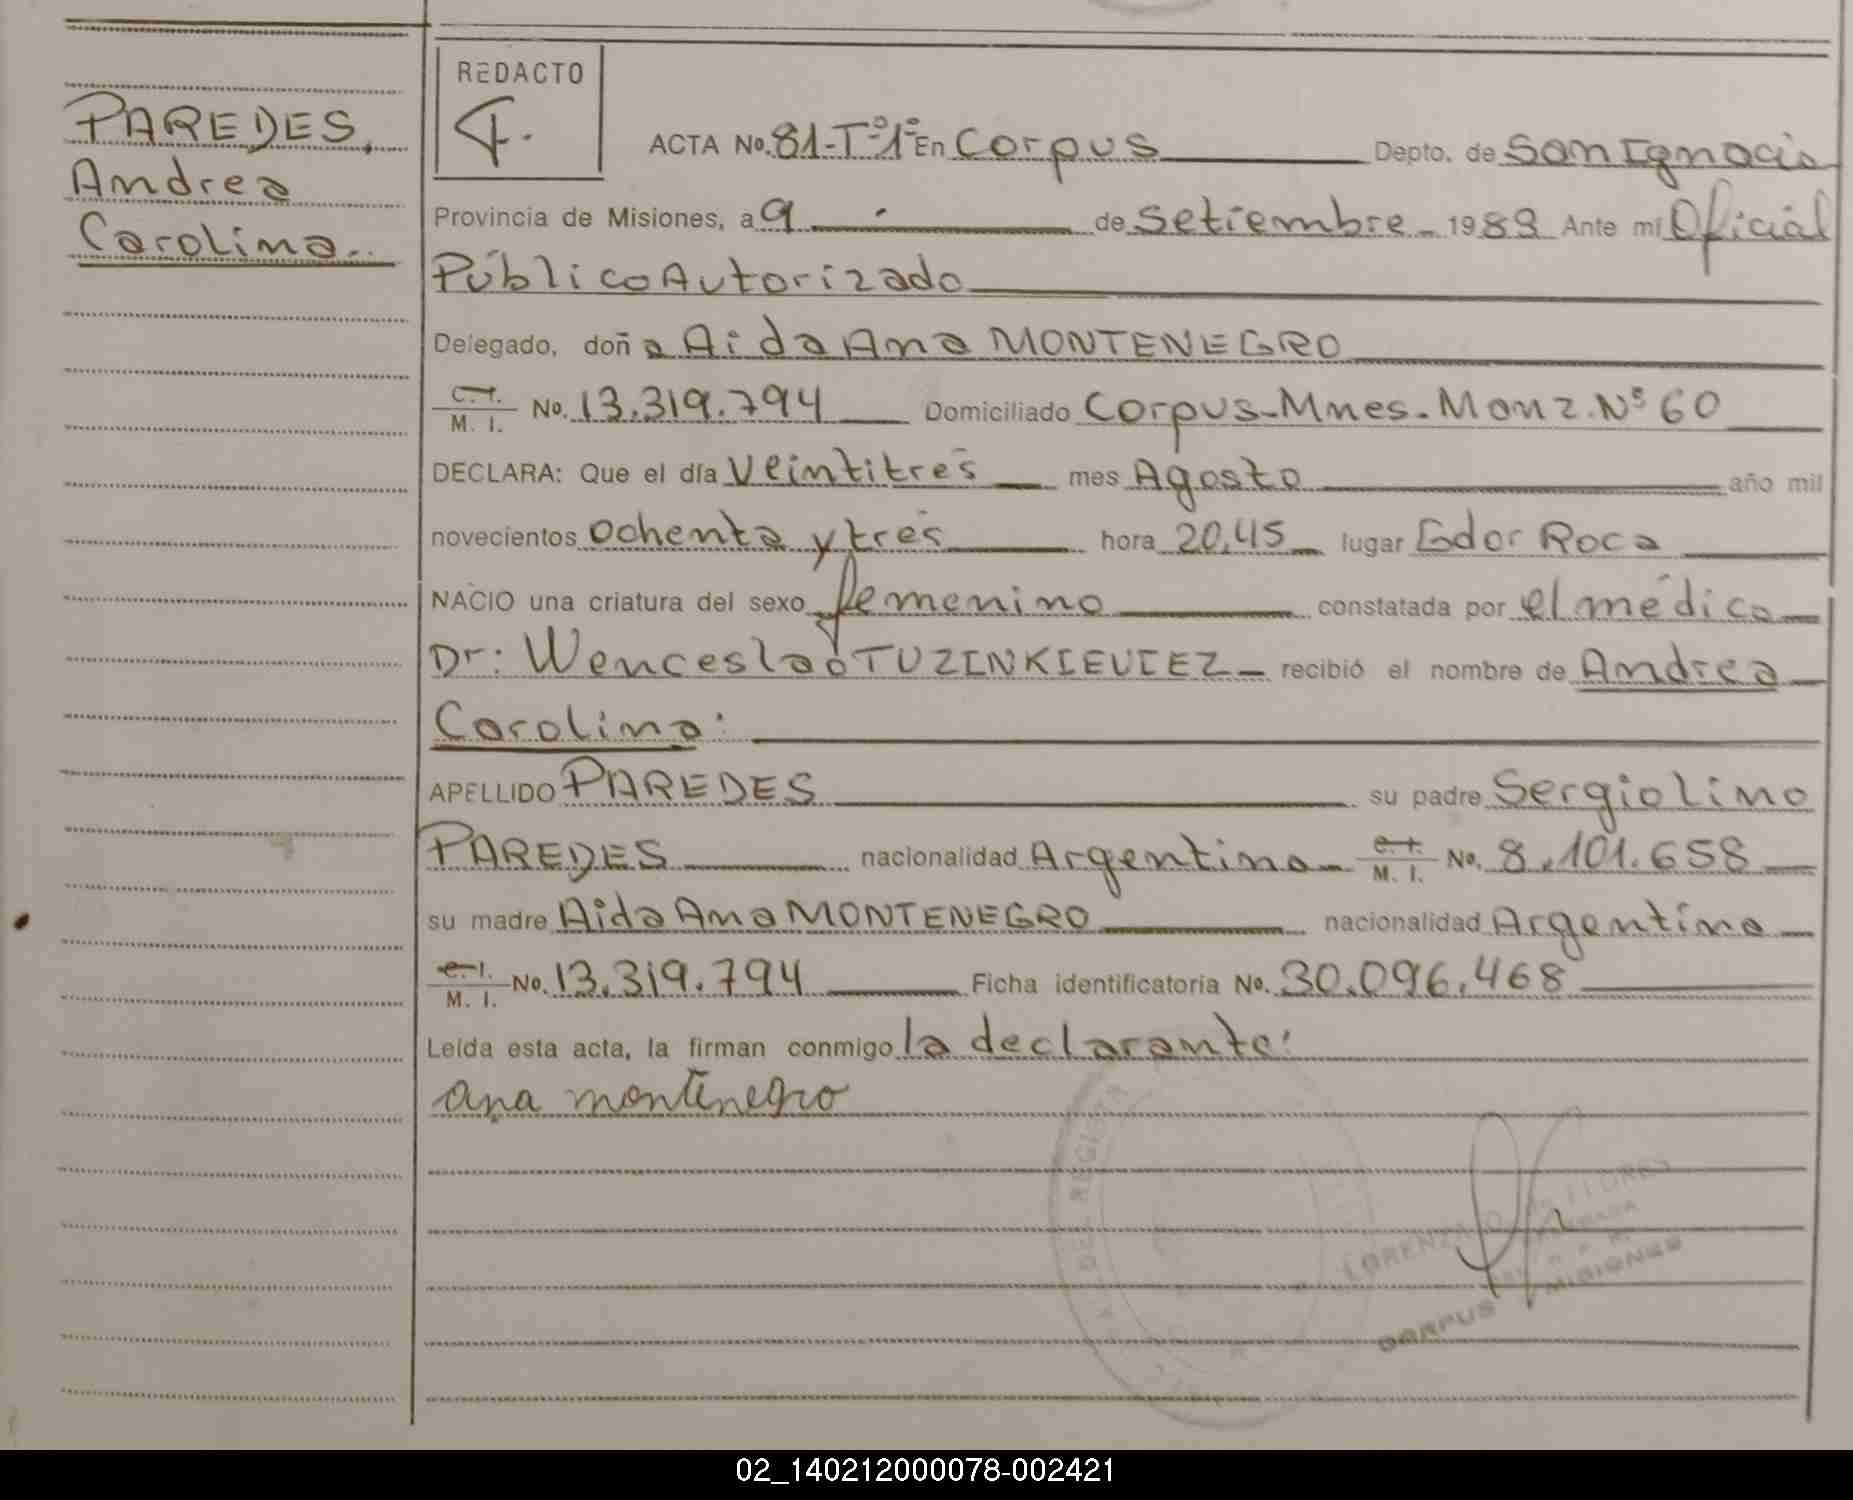 PAREDES,
Andrea
Carolina..
REDACTO
ACTA No. 81-Tº1º En Corpus Depto. de San Ignacio
Provincia de Misiones, a 9 de Setiembre 1983 Ante mí Oficial
Público Autorizado
Delegado, doña Aida Ana MONTENEGRO
C.I. M. I. No. 13.319.794 Domiciliado Corpus-Mnes-Manz.Nº 60
DECLARA: Que el día Veintitrés mes Agosto año mil
novecientos Ochenta y tres hora 20,45 lugar Gdor Roca
NACIO una criatura del sexo femenino constatada por el médico
Dr: Wenceslao TUZINKIEVIEZ recibió el nombre de Andrea
Carolina:
APELLIDO PAREDES su padre Sergio Lino
PAREDES nacionalidad Argentina C.I. M. I. No. 8.101.658
su madre Aida Ana MONTENEGRO nacionalidad Argentina
C.I. M. I. No. 13.319.794 Ficha identificatoria No. 30.096.468
Leída esta acta, la firman conmigo la declarante:
ana montenegro
MISIONES
CORPUS
02_140212000078-002421